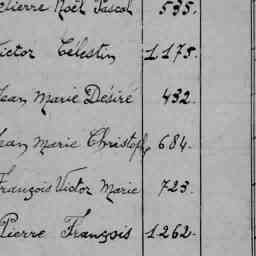 Pierre Noël Pascal 535.
Victor Célestin 1175.
Jean Marie Désiré 432.
Jean Marie Christophe 684.
François Victor Marie 723.
Pierre François 1262.